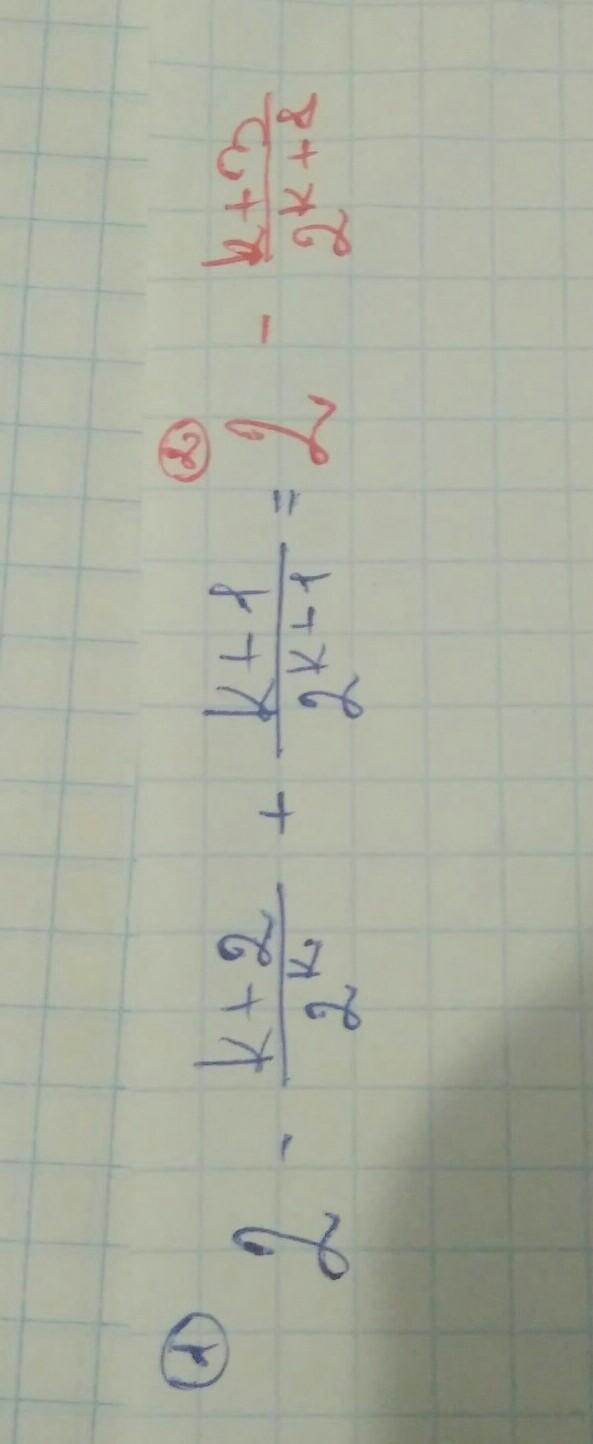 ① 2 - \frac{k+2}{2^k} + \frac{k+1}{2^{k+1}} = ② 2 - \frac{k+3}{2^{k+1}}